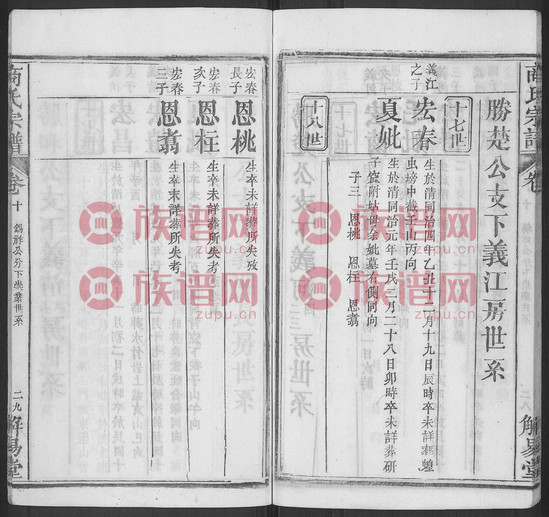 商氏宗譜
卷
解易堂
勝楚公支下義江房世系
十七世
義江之子
宏春
生於清同治四年乙丑十二月十九日辰時卒未詳葬蝗
虫塝中截壬山丙向
夏妣
生於清同治元年壬戌二月二十八日卯時卒未詳葬研
子窊附姑母余妣墓右側同向
子三 恩桃 恩枉 恩翥
十八世
宏春長子
恩桃
生卒未詳葬所失攷
宏春次子
恩枉
生卒未詳葬所失考
宏春三子
恩翥
生卒未詳葬所失考
商氏宗譜
卷十
二九
解易堂
族谱网
zupu.cn
族谱网
zupu.cn
族谱网
zupu.cn
族谱网
zupu.cn